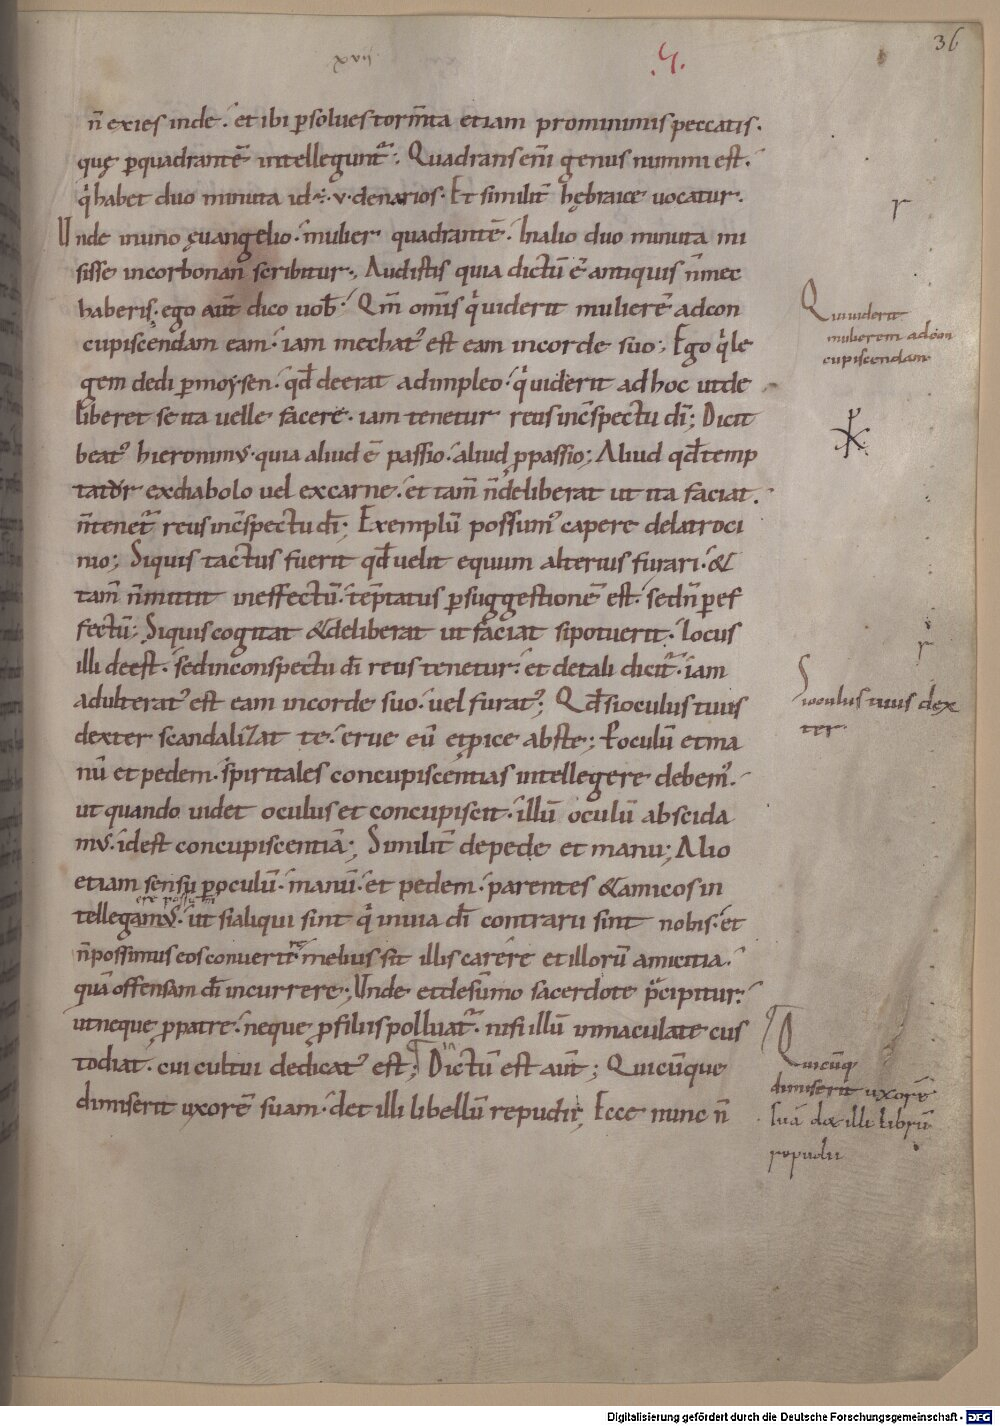 xvii
36
n̄ exies inde. et ibi ꝑsolues torm̄ta etiam pro minimis peccatis.
quę ꝑ quadrantē intellegunt᷑. Quadrans eni̅ genus nummi est.
qͥ habet duo minuta id÷ .v. denarios. Et similit̄ hębraice uocatur.
Unde in uno ęuangelio. mulier quadrantē. In alio duo minuta mi
sisse in corbonan scribitur; Audistis quia dictū ē antiquis n̄ mec
haberis. ego aūt dico uob̄. Qm̄ om̄is qͥ uiderit mulierē ad con
cupiscendam eam. iam mechatꝰ est eam in corde suo; Ego qͥ le
gem dedi ꝑ moysen. qđ deerat adimpleo. qͥ uiderit ad hoc ut de
liberet se ita uelle facere. iam tenetur reus in c̄spectu dī; Dicit
beatꝰ hieronimꝰ. quia aliud ē passio. aliud ꝓpassio; Aliud qđ temp
tatur ex diabolo uel ex carne. et tam̄ n̄ deliberat ut ita faciat.
n̄ tenet᷑ reus in c̄spectu dī; Exemplū possumꝰ capere de latroci
nio; Siquis tactus fuerit qđ uelit equum alterius furari. &
tam̄ n̄ mittit in effectū. tēptatus ꝑ suggestionē est. sed n̄ ꝑ ef
fectū; Siquis cogitat & deliberat ut faciat si potuerit. locus
illi deest. sed in conspectu dī reus tenetur. et de tali dicit᷑. iam
adulteratꝰ est eam in corde suo. uel furatꝰ; Qđ si oculus tuus
dexter scandalizat te. erue eū et ꝓice abs te; P oculū et ma
nū et pedem. spiritales concupiscentias intellegere debemꝰ.
ut quando uidet oculus et concupiscit. illū oculū abscida
mꝰ. id est concupiscentiā; Similit̄ de pede et manu; Alio
etiam sensu ꝑ oculū. manū. et pedem. parentes & amicos in
ere possum̄
tellegamꝰ. ut si aliqui sint qͥ in uia dī contrarii sint nobis. et
n̄ possimus eos conuertere melius sit illis carere et illorū amicitia.
quā offensam dī incurrere; Unde et de sūmo sacerdote p̄cipitur.
ut neque ꝓ patre. neque ꝓ filiis polluat᷑. nisi illū inmaculate cus
todiat. cui cultui dedicatꝰ est; Dictū est aūt; Quicūque
dimiserit uxorē suam. det illi libellū repudii; Ecce nunc n̄
r
Qui uiderit
mulierem ad con
cupiscendam
r
Si oculus tuus dex
ter
Quicūq
dimiserit uxorē
suā det illi librū
repudii
Digitalisierung gefördert durch die Deutsche Forschungsgemeinschaft - DFG